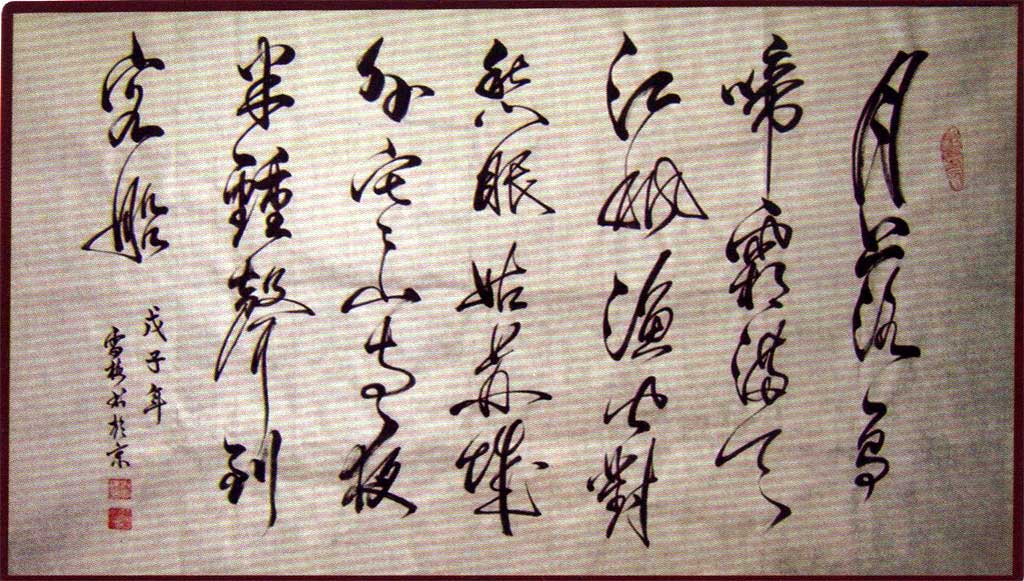 月落烏
啼霜滿天
江楓漁火對
愁眠姑蘇城
外寒山寺夜
半鍾聲到
客船
戊子年
雪书於京